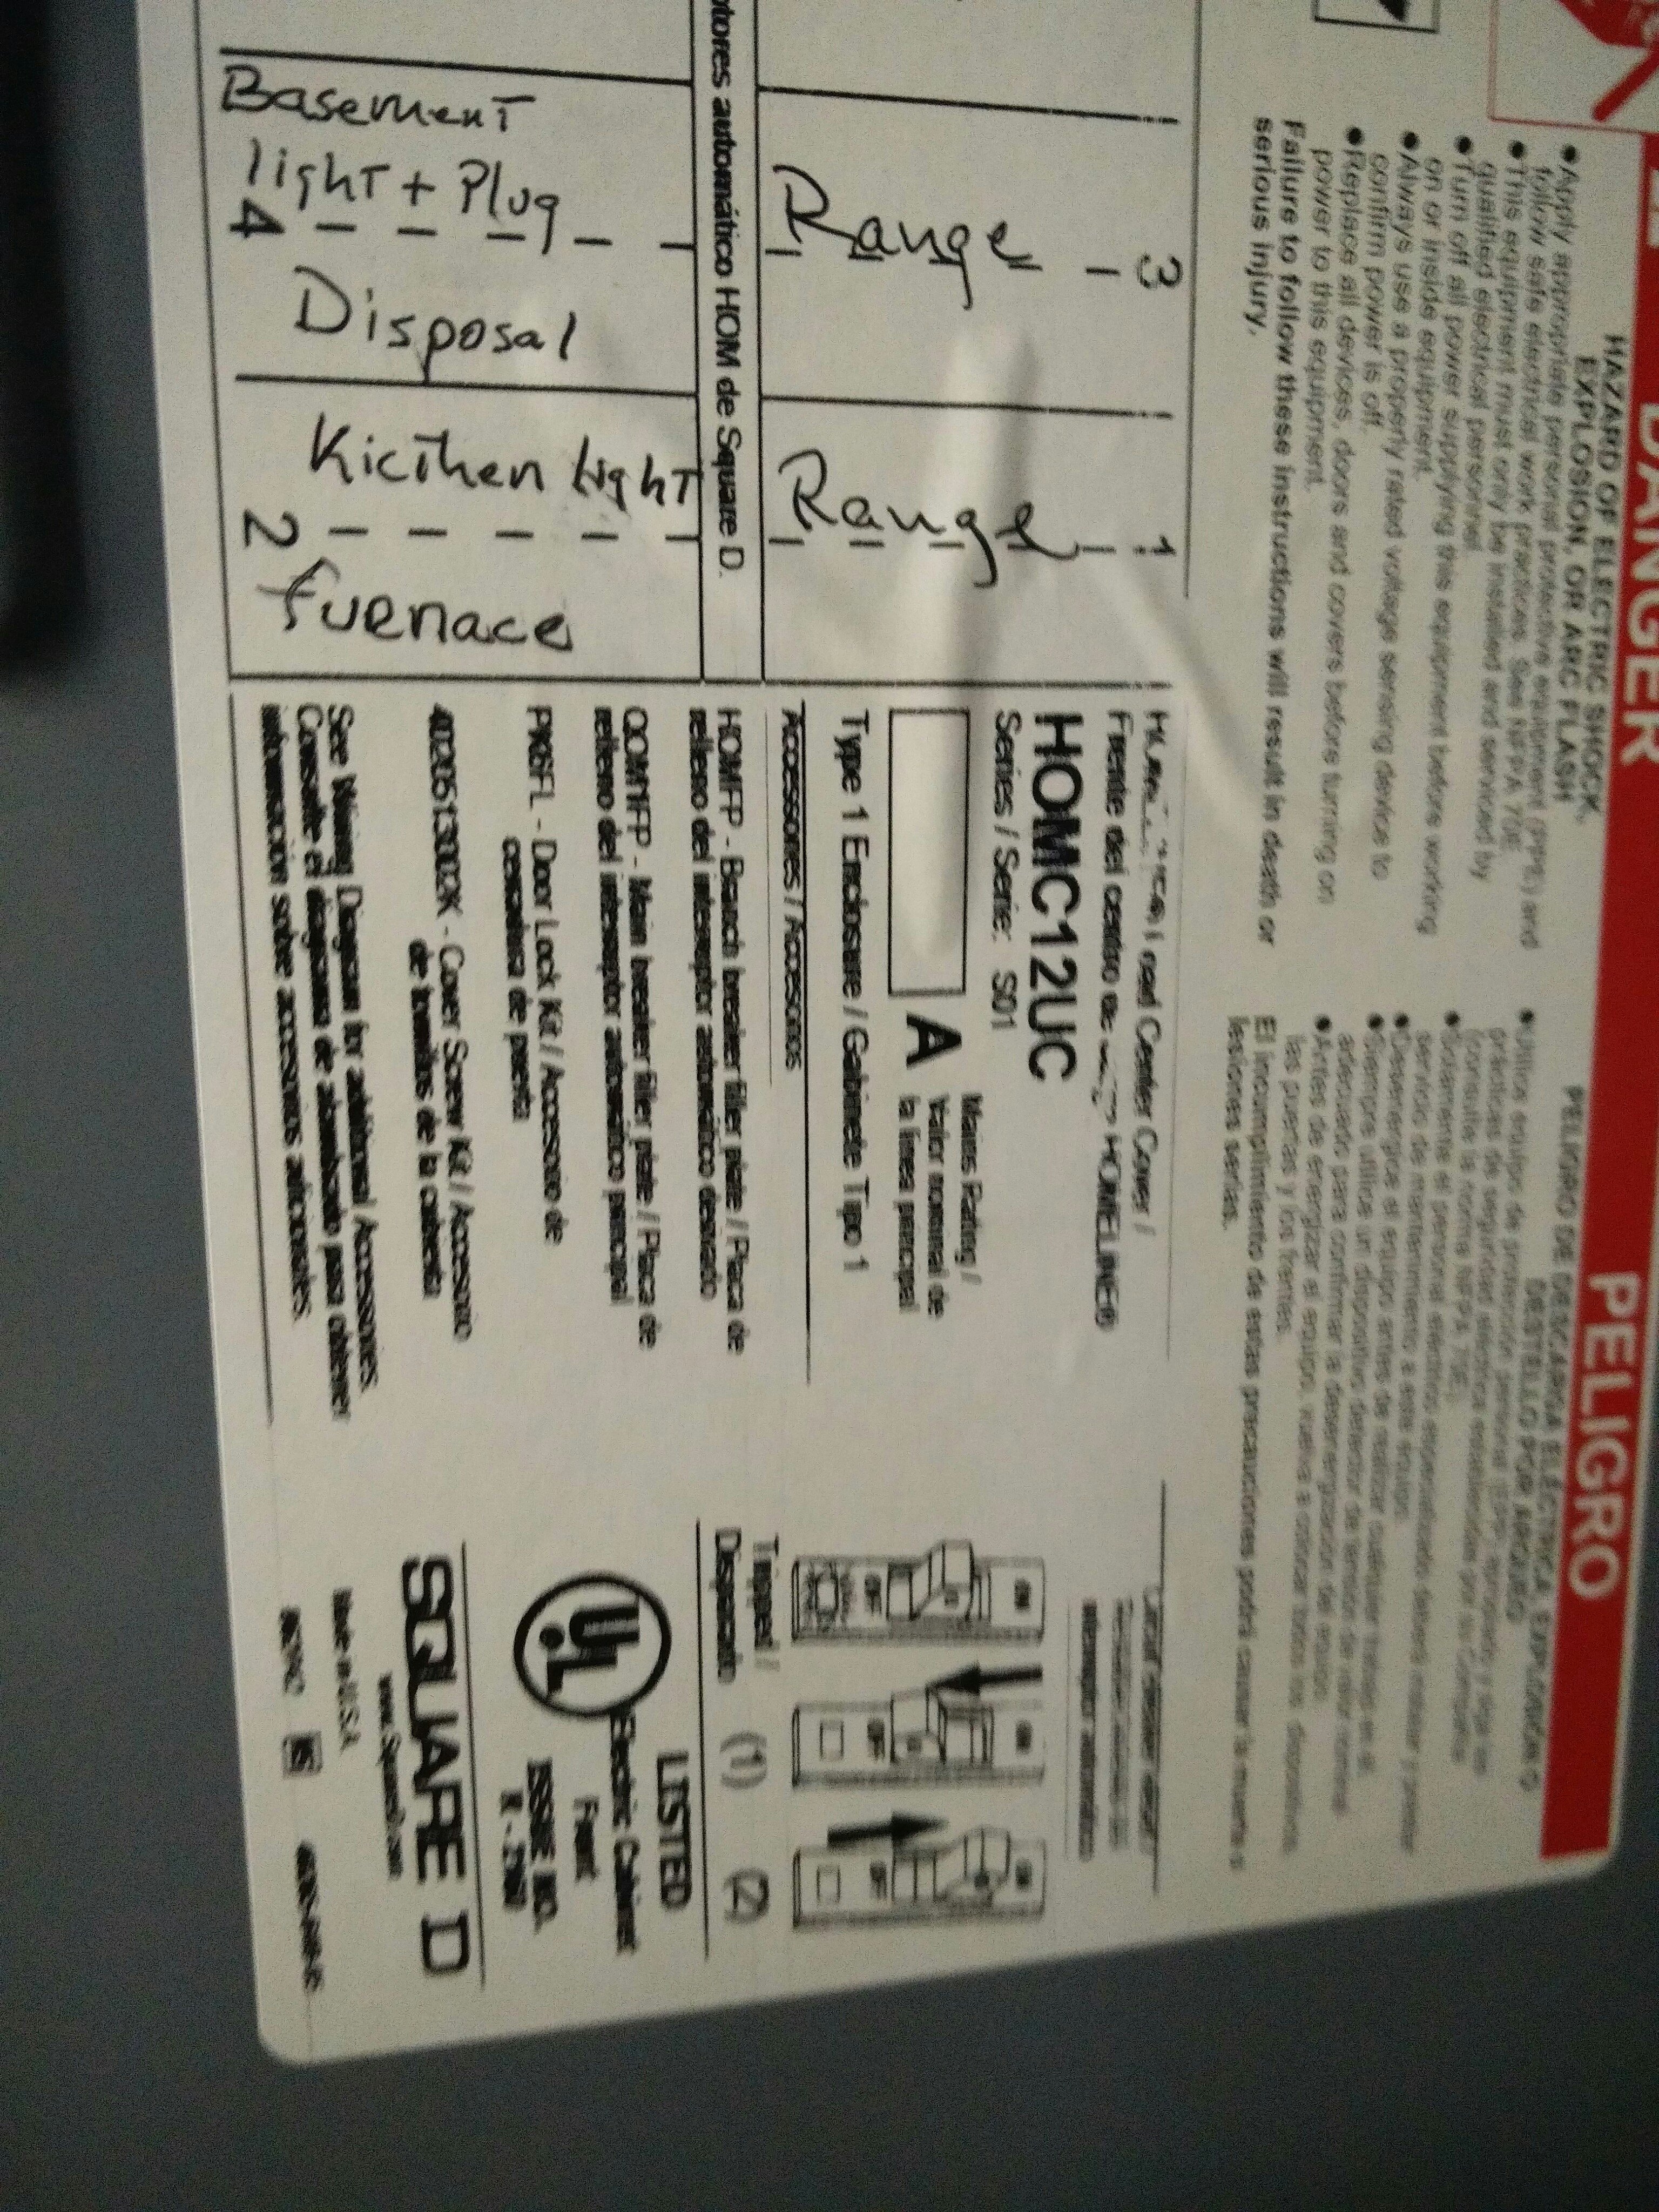 DANGER
HAZARD OF ELECTRIC SHOCK,
EXPLOSION, OR ARC FLASH
●Apply appropriate personal protective equipment (PPE) and
follow safe electrical work practices. See NFPA 70E.
●This equipment must only be installed and serviced by
qualified electrical personnel.
●Turn off all power supplying this equipment before working
on or inside equipment.
●Always use a properly rated voltage sensing device to
confirm power is off.
●Replace all devices, doors and covers before turning on
power to this equipment.
Failure to follow these instructions will result in death or
serious injury.
PELIGRO
PELIGRO DE DESCARGA ELÉCTRICA, EXPLOSIÓN O
DESTELLO POR ARQUEO
●Utilice equipo de protección personal (EPP) apropiado y siga las
prácticas de seguridad eléctrica establecidas por su Compañía
(consulte la norma NFPA 70E).
●Solamente el personal eléctrico especializado deberá instalar y prestar
servicio de mantenimiento a este equipo.
●Desenergice el equipo antes de realizar cualquier trabajo en él.
●Siempre utilice un dispositivo detector de tensión de valor nominal
adecuado para confirmar la desenergización del equipo.
●Antes de energizar el equipo, vuelva a colocar todos los dispositivos,
las puertas y los frentes.
El incumplimiento de estas precauciones podrá causar la muerte o
lesiones serias.
3
Range
1
Range
automático HOM de Square D.
Basement
light + Plug
4
Disposal
Kicthen light
2
furnace
Load Center Cover /
Frente del centro de HOMELINE®
HOMC12UC
Series / Serie: S01
A
Mains Rating /
Valor nominal de
la línea principal
Type 1 Enclosure / Gabinete Tipo 1
Accessories / Accesorios
HOMFP - Branch breaker filler plate / Placa de
relleno del interruptor automático derivado
QOM1FP - Main breaker filler plate / Placa de
relleno del interruptor automático principal
PK6FL - Door Lock Kit / Accesorio de
cerradura de puerta
- Cover Screw Kit / Accesorio
de tornillos de la cubierta
See Wiring Diagram for additional Accessories.
Consulte el diagrama de alambrado para obtener
información sobre accesorios adicionales.
interruptor automático
ON
OFF
ON
OFF
ON
OFF
Tripped /
Disparado
(1)
(2)
UL
LISTED
Electric Cabinet
Front
ISSUE NO.
SQUARE D
Made in U.S.A.